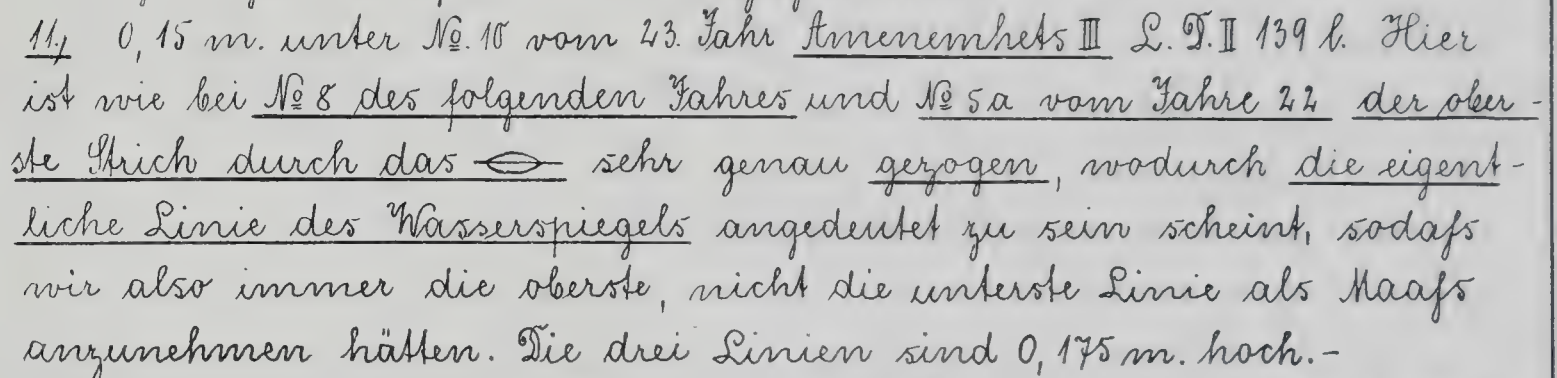 11.) 0,15 m. unter №. 10 vom 23. Jahr Amenemhets III L. D. II 139 b. Hier
ist wie bei № 8 des folgenden Jahres und № 5a vom Jahre 22 der ober-
ste Strich durch das 𓂋 sehr genau gezogen, wodurch die eigent-
liche Linie des Wasserspiegels angedeutet zu sein scheint, sodaſs
wir also immer die oberste, nicht die unterste Linie als Maaſs
anzunehmen hätten. Die drei Linien sind 0,175 m. hoch.-